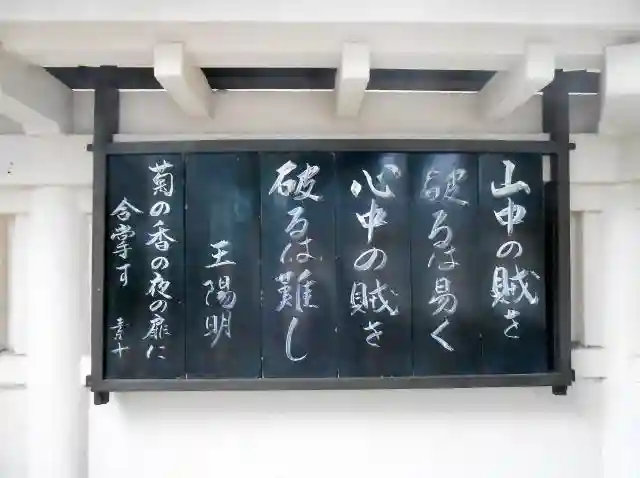 山中の賊を
破るは易く
心中の賊を
破るは難し
王陽明
菊の香の夜の扉に
合掌す
素十